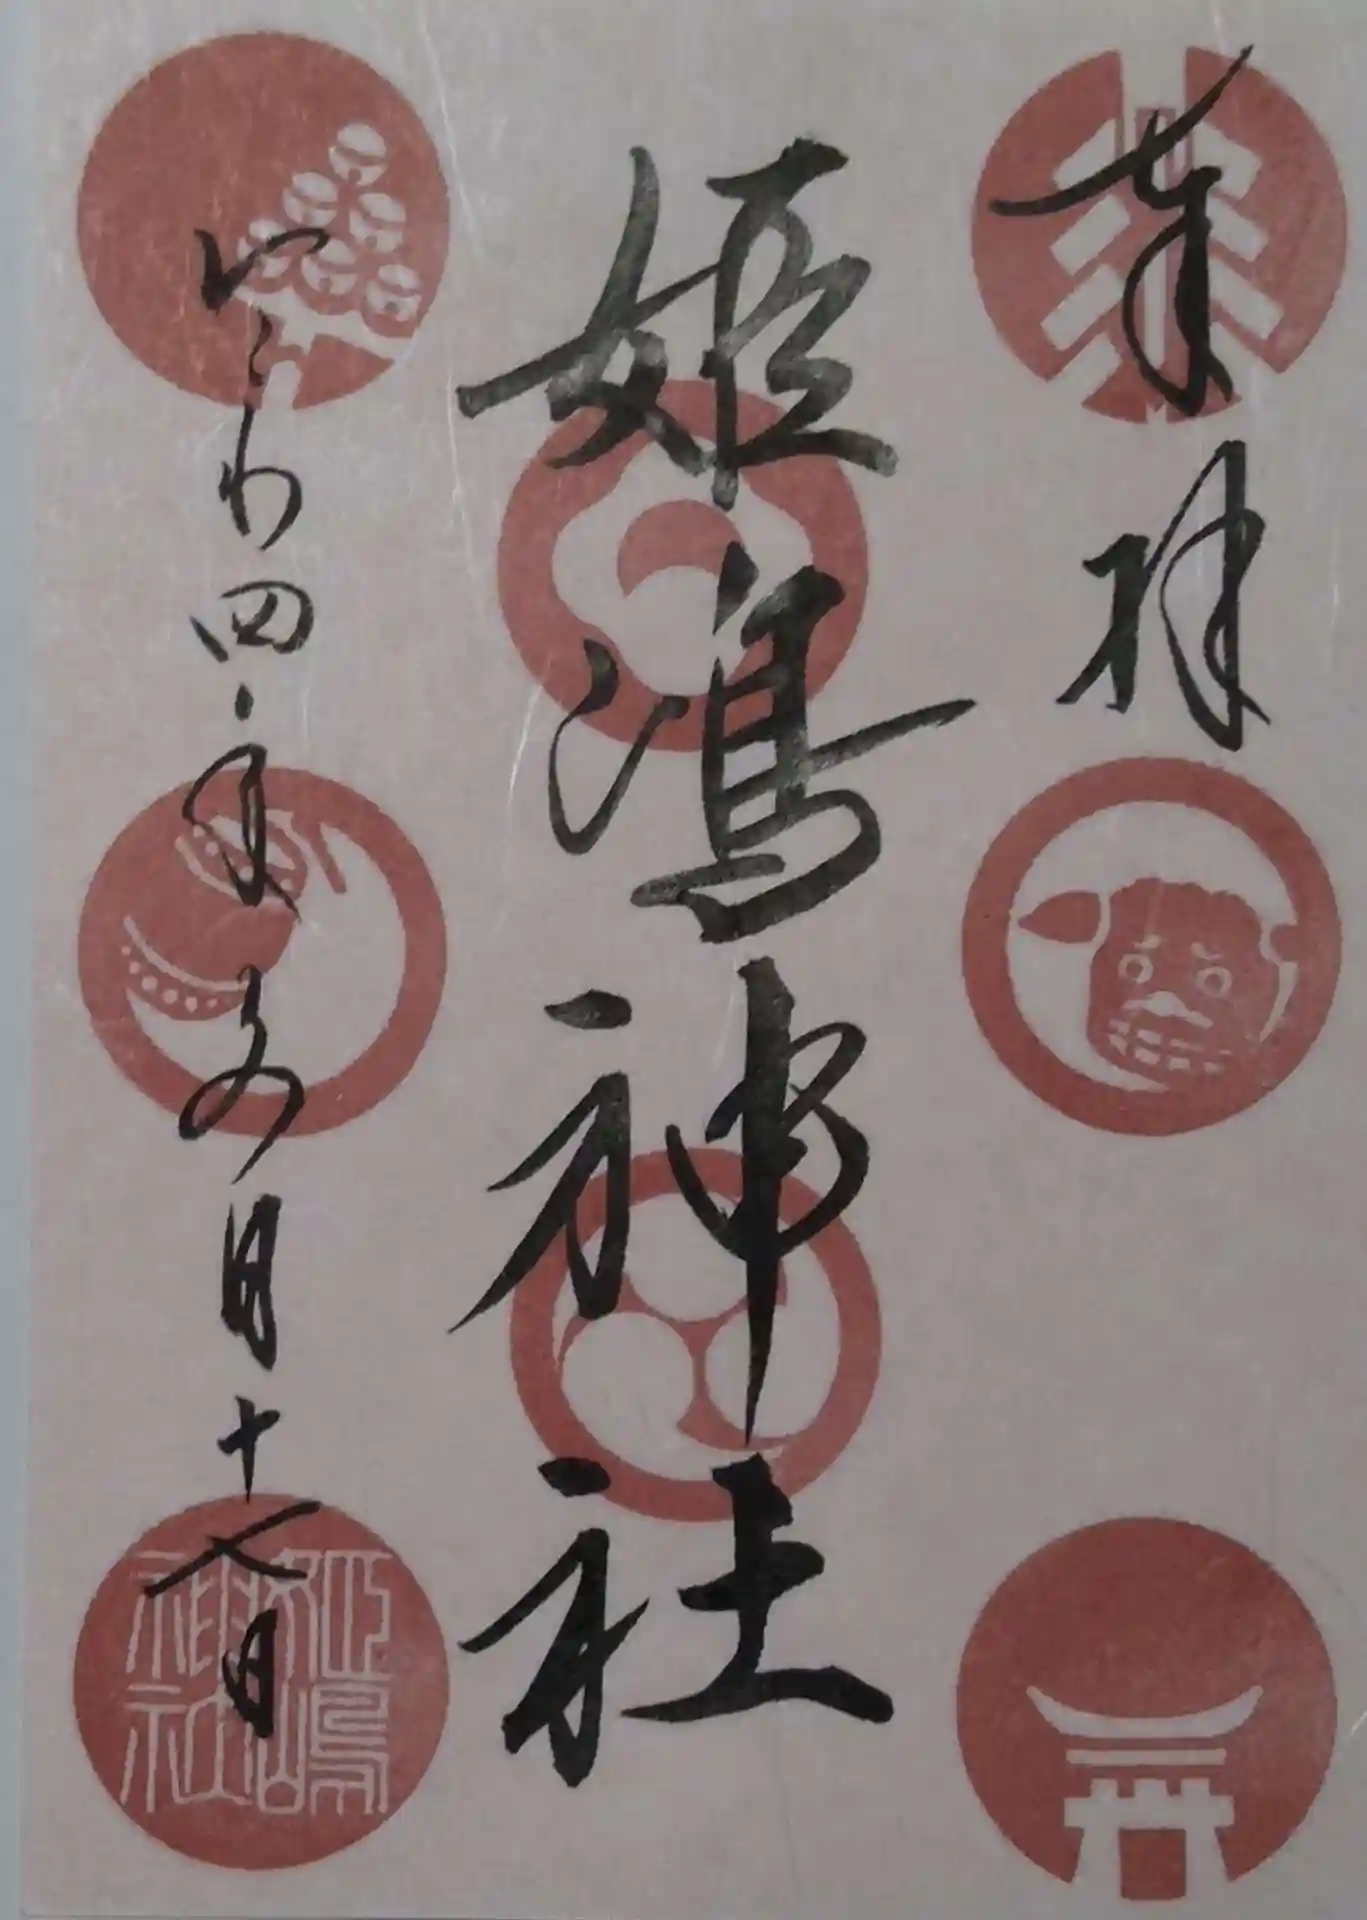 奉拝
姫嶋神社
令和四年五月十八日
姫嶋
神社